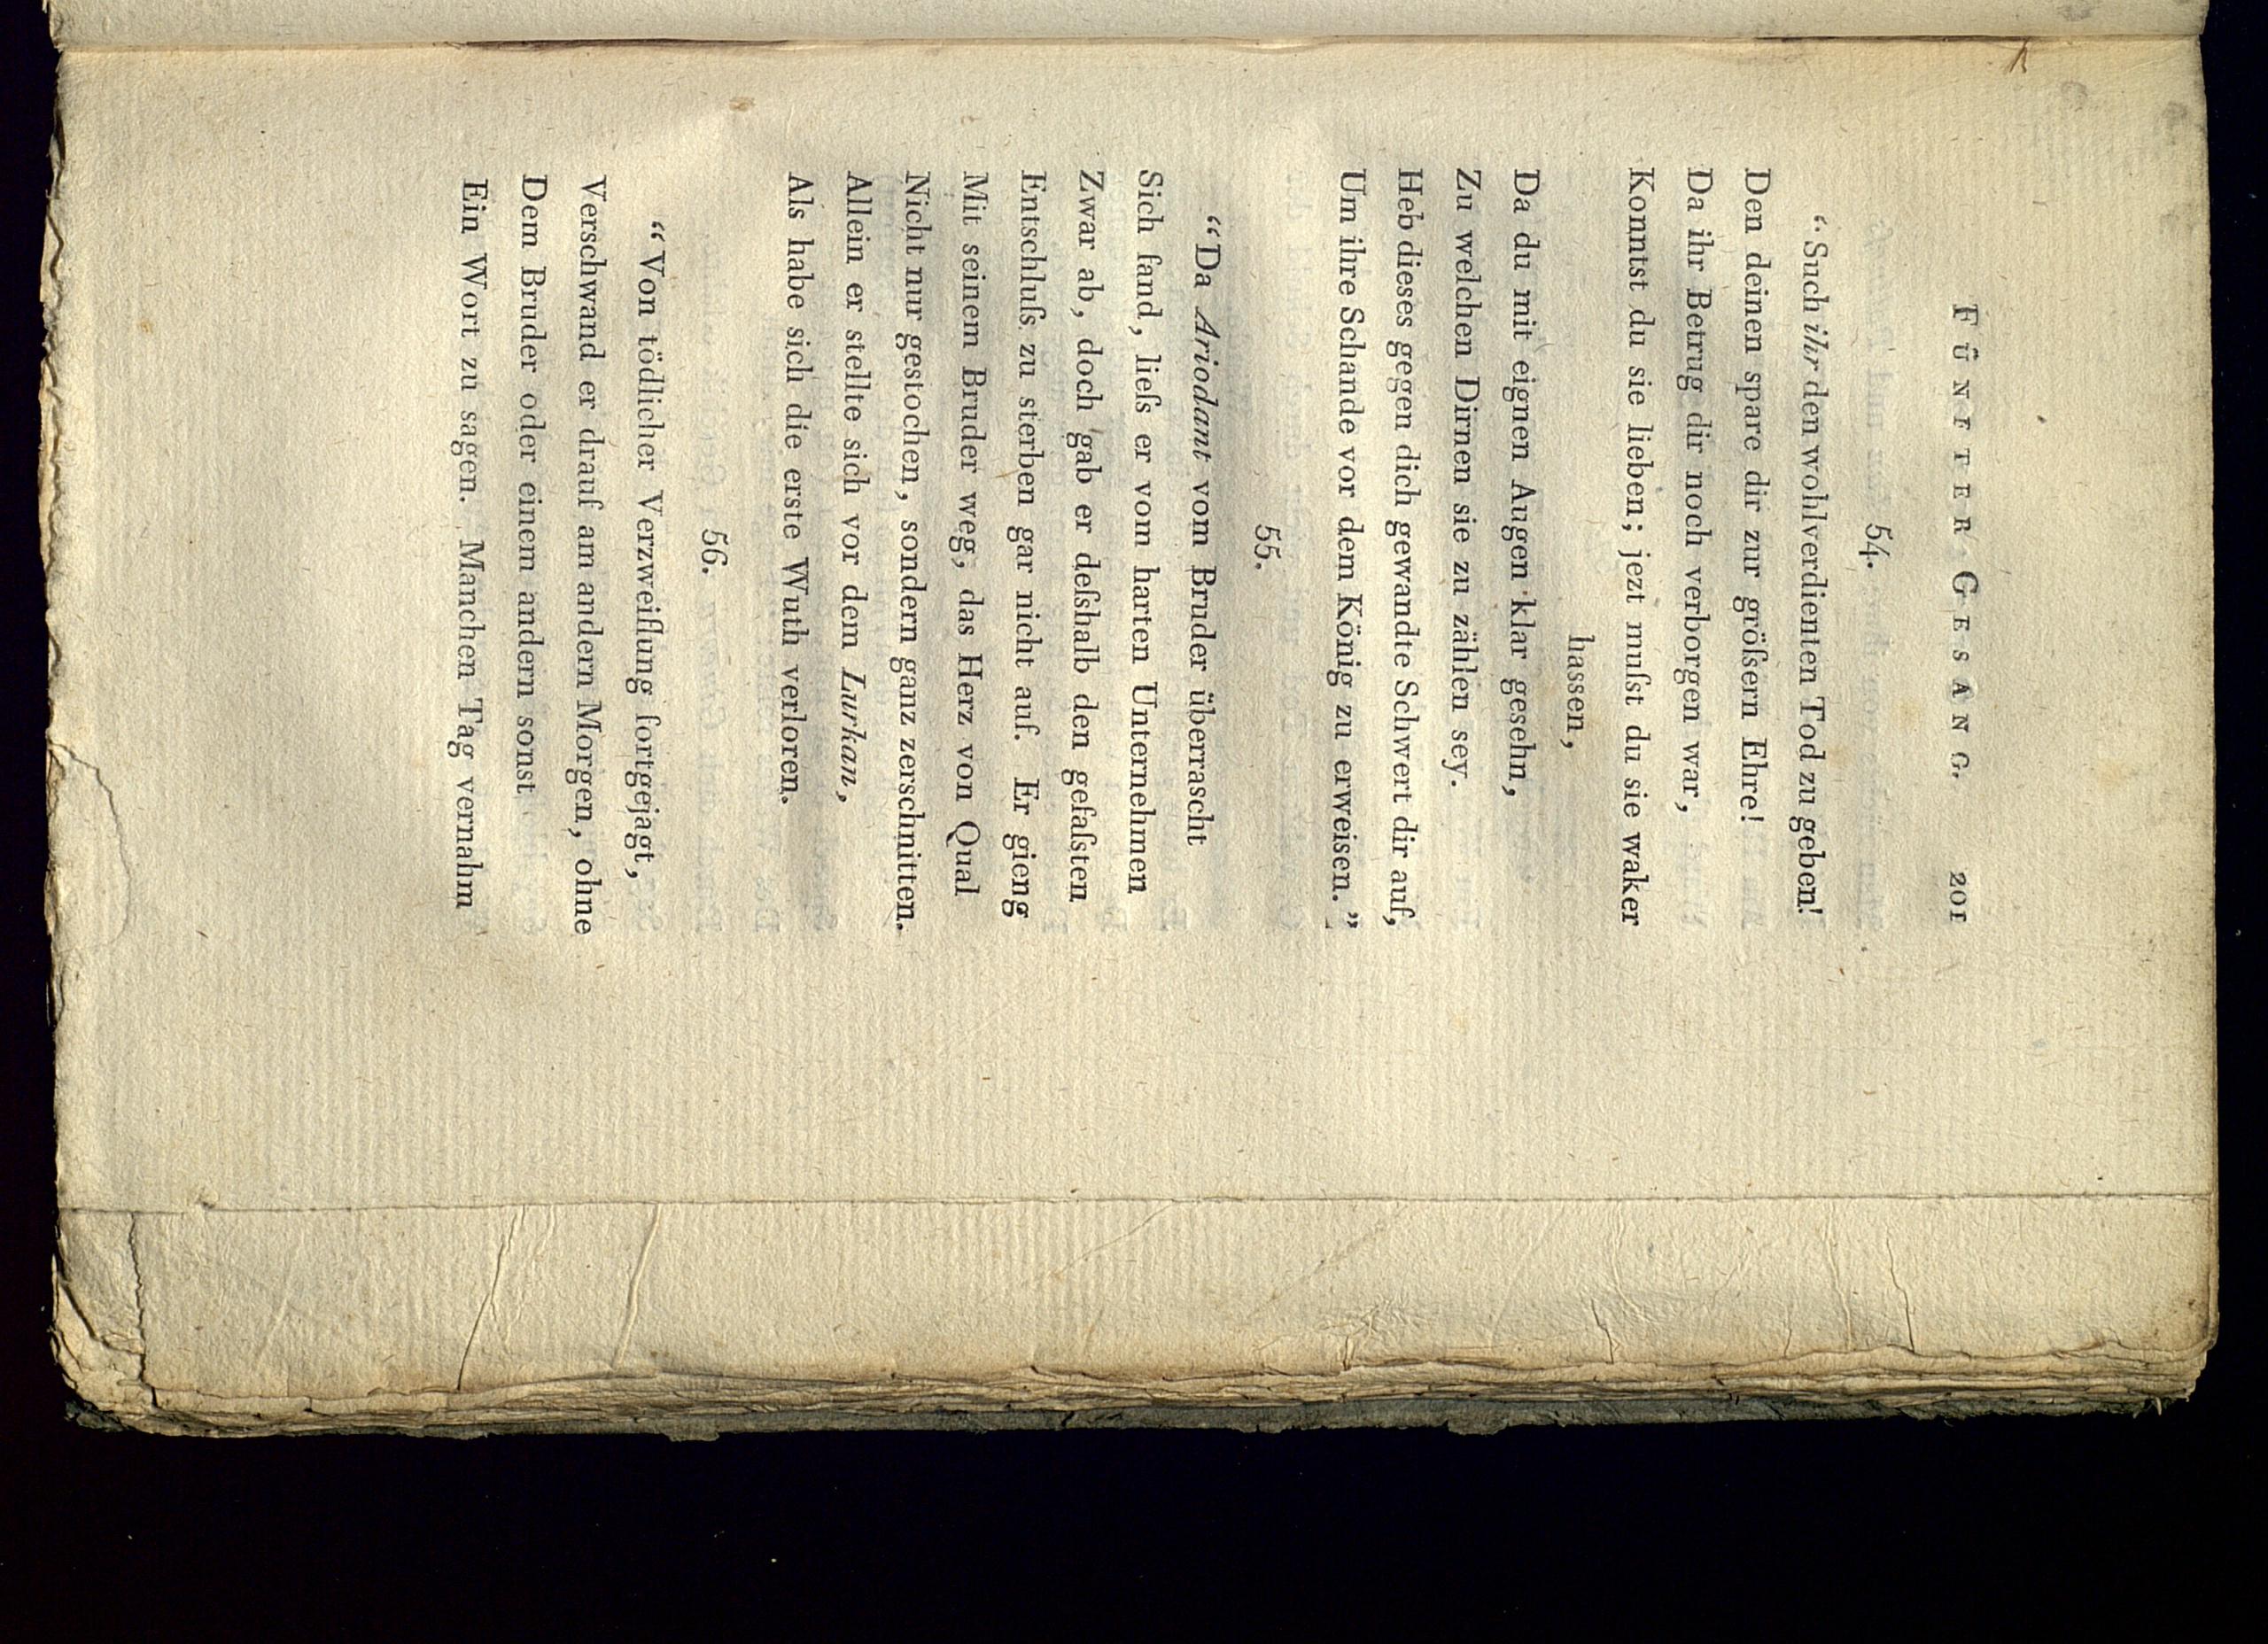 FÛNFTER GESANG. 201
54.
“Such ihr den wohlverdienten Tod zu geben!
Den deinen spare dir zur größern Ehre!
Da ihr Betrug dir noch verborgen war,
Konntst du sie lieben; jezt mußt du sie waker
hassen,
Da du mit eignen Augen klar gesehn,
Zu welchen Dirnen sie zu zählen sey.
Heb dieses gegen dich gewandte Schwert dir auf,
Um ihre Schande vor dem König zu erweisen.”
55.
“Da Ariodant vom Bruder überrascht
Sich fand, ließs er vom harten Unternehmen
Zwar ab, doch gab er deßshalb den gefaßsten
Entschlußs zu sterben gar nicht auf. Er gieng
Mit seinem Bruder weg, das Herz von Qual
Nicht nur gestochen, sondern ganz zerschnitten.
Allein er stellte sich vor dem Lurkan,
Als habe sich die erste Wuth verloren.
56.
“Von tödlicher Verzweiflung fortgejagt,
Verschwand er drauf am andern Morgen, ohne
Dem Bruder oder einem andern sonst
Ein Wort zu sagen. Manchen Tag vernahm